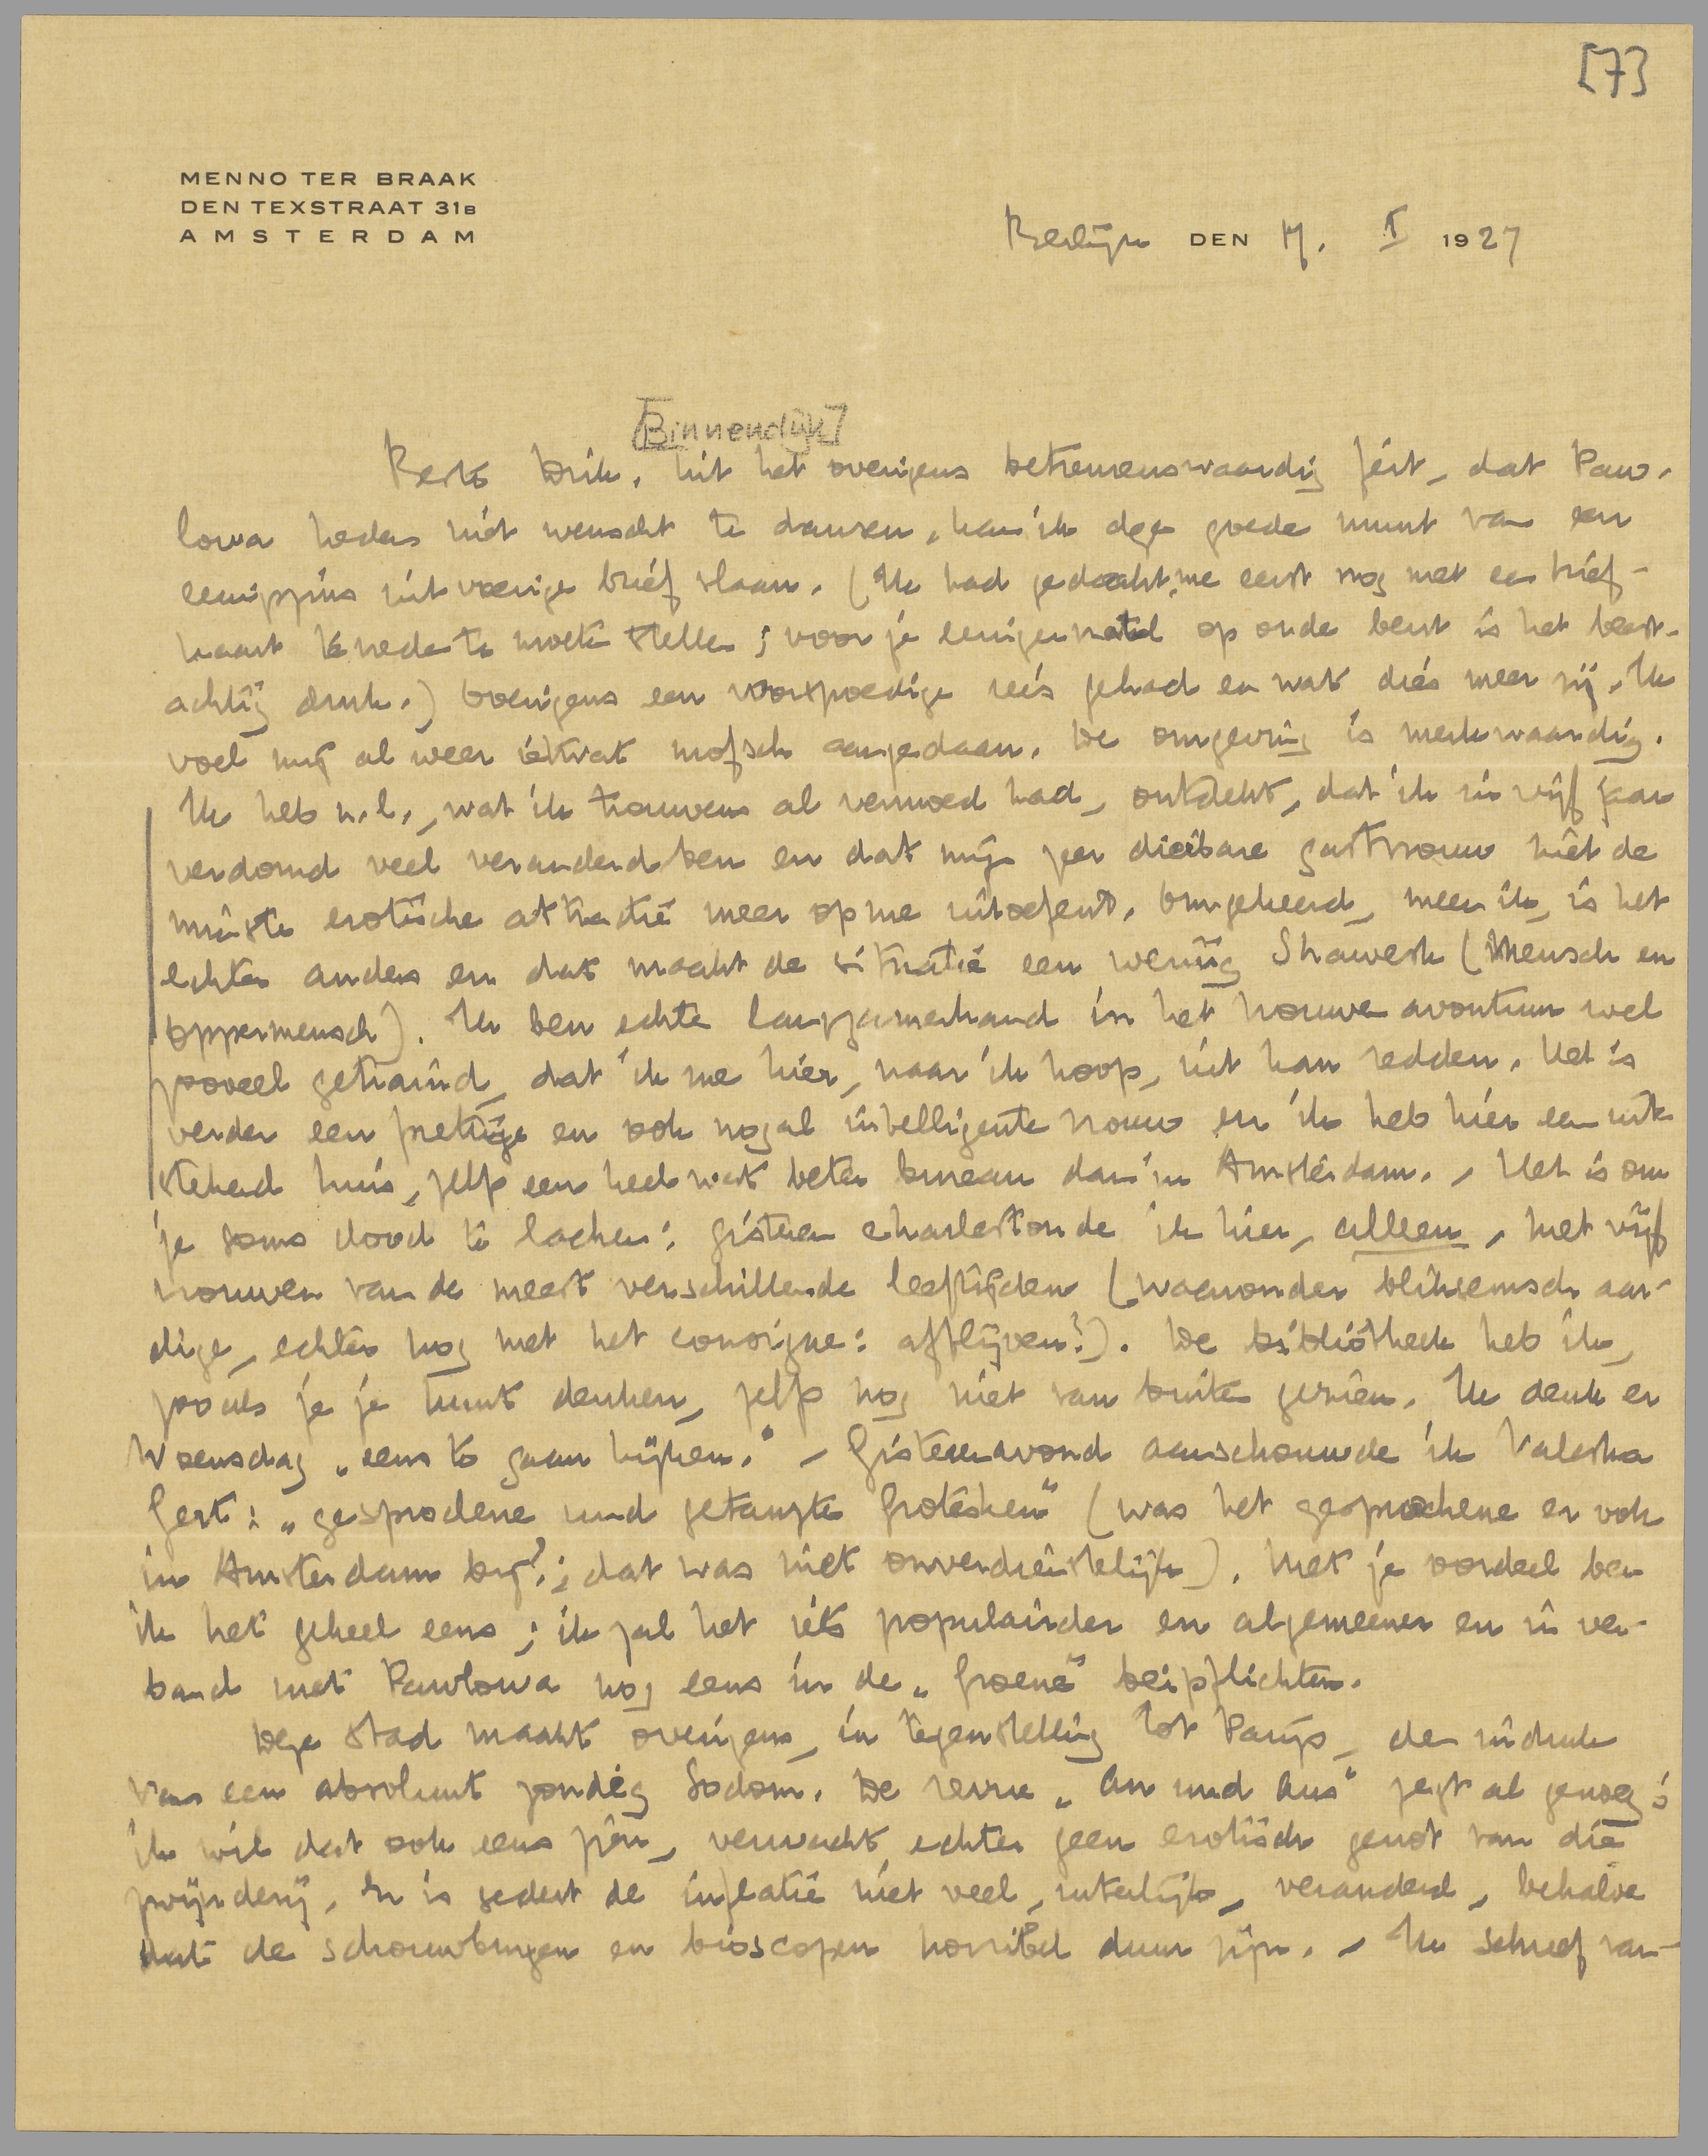 [7]
MENNO TER BRAAK
DEN TEXSTRAAT 31B
AMSTERDAM
Berlijn DEN 17. I 1927
[Binnendijk]
Beste Dick. Uit het overigens betreurenswaardig feit, dat Paw-
lowa heden niet wenscht te dansen, kan ik deze goede munt van een
eenigszins uitvoerige brief slaan. (Ik had gedacht, me eerst nog met een brief-
kaart tevreden te moeten stellen; voor je eenigermate op orde bent is het beest-
achtig druk.) Overigens een voorspoedige reis gehad en wat dies meer zij. Ik
voel mij al weer ietwat mofsch aangedaan. De omgeving is merkwaardig.
Ik heb n.l., wat ik trouwens al vermoed had, ontdekt, dat ik in vijf jaar
verdomd veel veranderd ben en dat mijn zeer dierbare gastvrouw niet de
minste erotische attractie meer op me uitoefent. Omgekeerd, meen ik, is het
echter anders en dat maakt de situatie een weinig Shawesk (Mensch en
Oppermensch). Ik ben echter langzamerhand in het vrouwenavontuur wel
zooveel getraind, dat ik me hier, naar ik hoop, uit kan redden. Het is
verder een prettige en ook nogal intelligente vrouw en ik heb hier een uit-
stekend huis, zelfs een heel wat beter bureau dan in Amsterdam. – Het is om
je soms dood te lachen: gisteren charlestonde ik hier, alleen, met vijf
vrouwen van de meest verschillende leeftijden (waaronder bliksemsch aar-
dige, echter nog met het consigne: afblijven!). De bibliotheek heb ik,
zooals je je kunt denken, zelfs nog niet van buiten gezien. Ik denk er
Woensdag „eens te gaan kijken.” – Gisterenavond aanschouwde ik Valeska
Gert: „gesprochene und getanzte Grotesken” (was het gesprochene er ook
in Amsterdam bij?; dat was niet onverdienstelijk). Met je oordeel ben
ik het geheel eens; ik zal het iets populairder en algemeener en in ver-
band met Pawlowa nog eens in de „Groene” beipflichten.
Deze stad maakt overigens, in tegenstelling tot Parijs, den indruk
van een absoluut zondig Sodom. De revue „An und Aus” zegt al genoeg;
ik wil dat ook eens zien, verwacht echter geen erotisch genot van die
zwijnderij. Er is sedert de inflatie niet veel, uiterlijk, veranderd, behalve
dat de schouwburgen en bioscopen horribel duur zijn. – Ik schreef van-